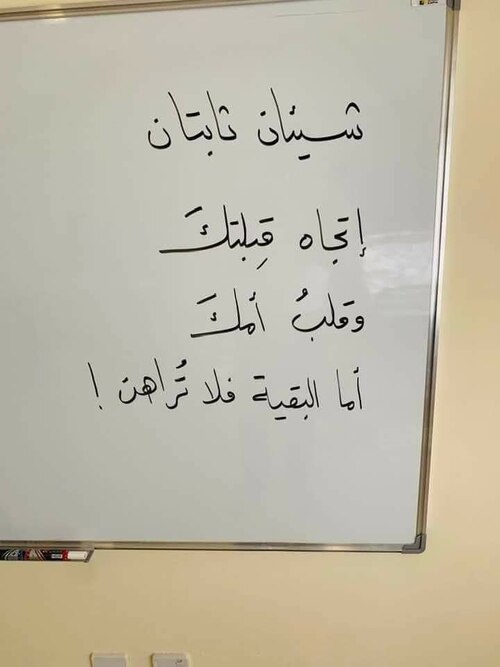 شيئان ثابتان
إتجاه قِبلتكَ
وقلبُ أمكَ
أما البقية فلا تُراهن !